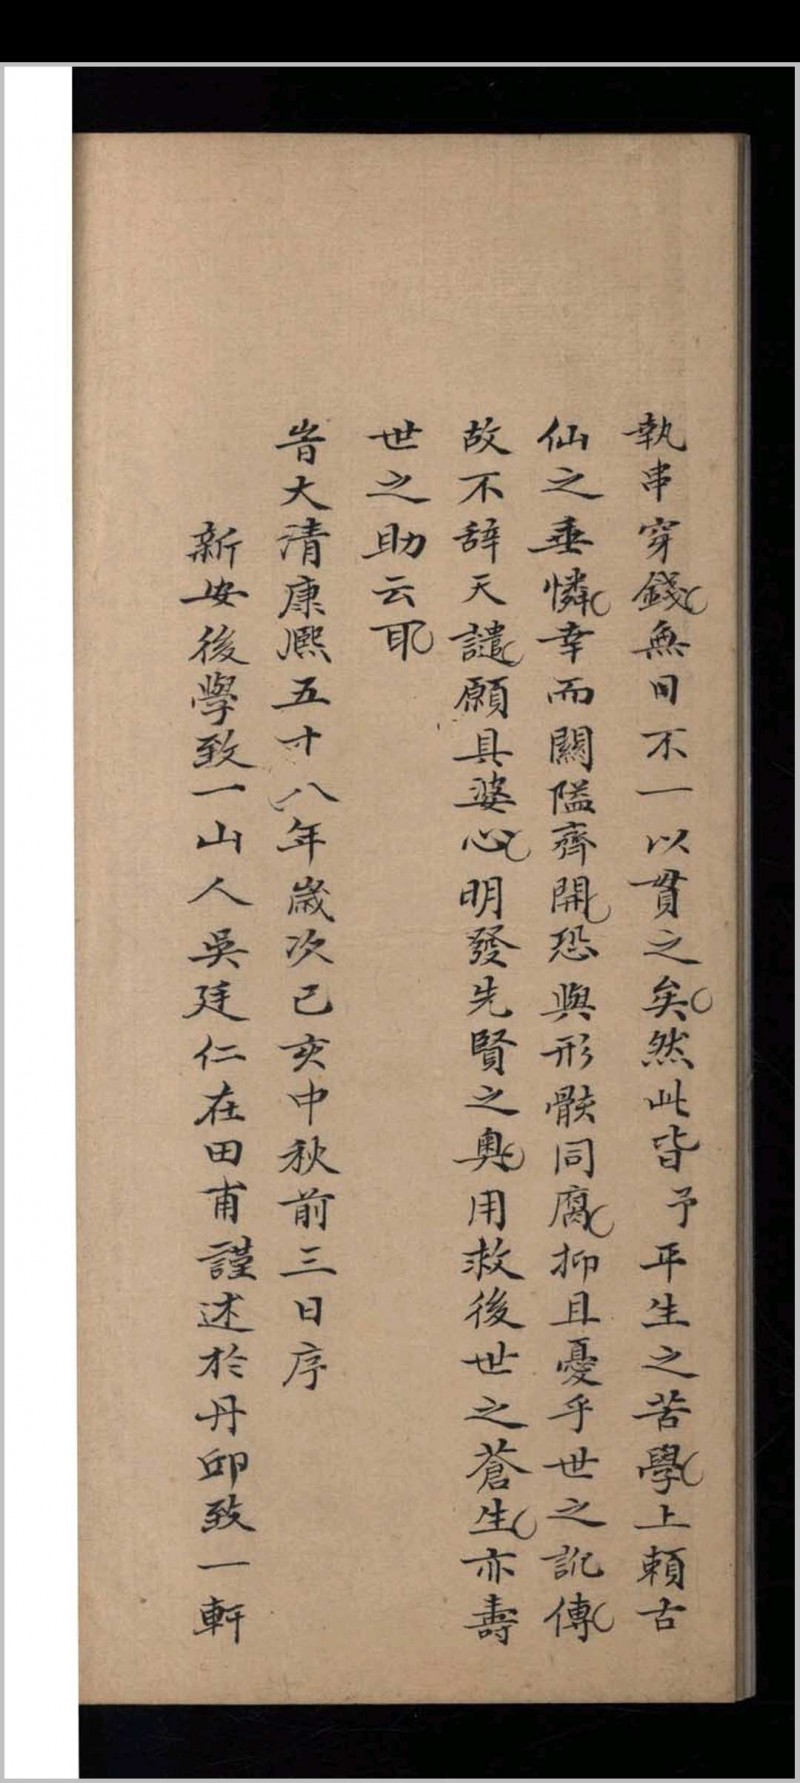 執串穿錢無日不一以貫之矣然此皆予平生之苦學上賴古
仙之垂憐幸而關隘齊開恐與形骸同腐抑且憂乎世之訛傳
故不辭天譴願具婆心明發先賢之奧用救後世之蒼生亦壽
世之助云耳
旹大清康熈五十八年歲次己亥中秋前三日序
新安後學致一山人吳廷仁在田甫謹述於丹邱致一軒